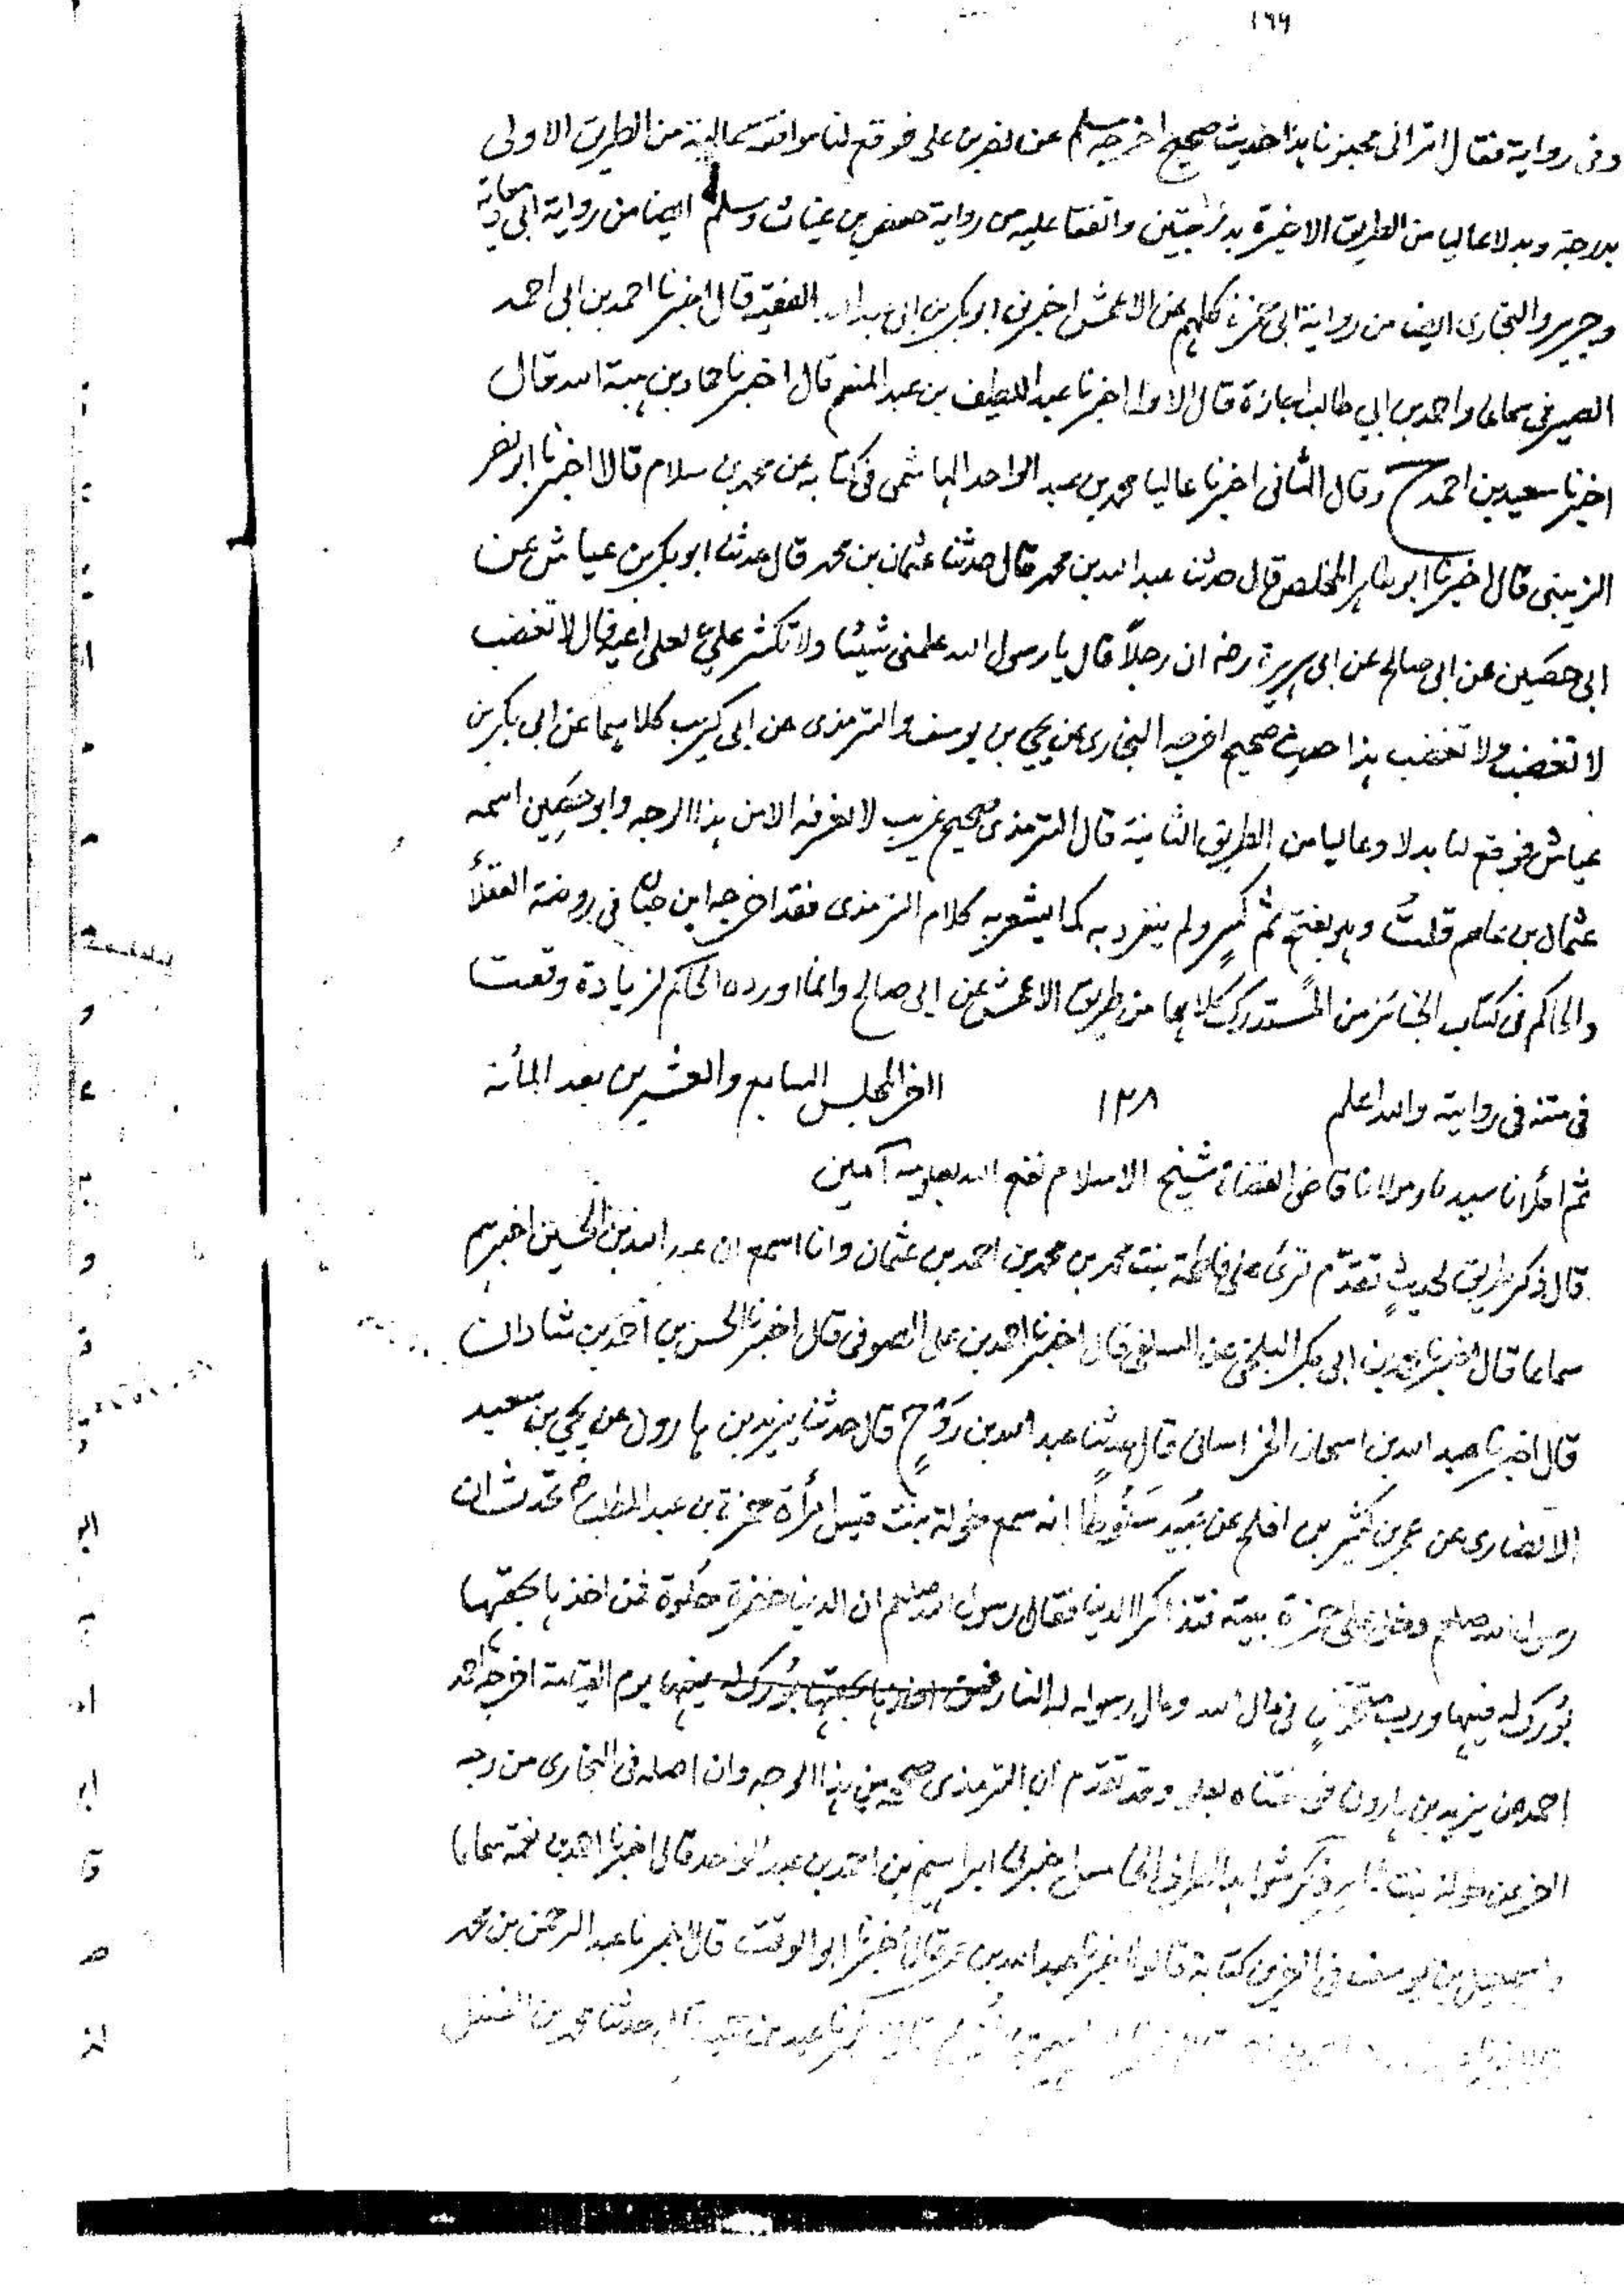 ١٦٦
وفى رواية فقال اترانى مجنونا هذا حديث صحيح اخرجه مسلم عن نصر بن على فوقع لنا موافقة عالية من الطريق الاولى
بدرجة وبدلا عاليا من الطريق الاخيرة بدرجتين واتفقا عليه من رواية حفص بن غياث ومسلم ايضا من رواية ابى معاوية
وجرير والبخارى ايضا من رواية ابى حمزة كلهم عن الاعمش اخبرنى ابو بكر بن ابى الفقيه قال اخبرنا احمد بن ابى احمد
الصيرفى سماعا واحمد بن ابي طالب اجازة قال الاول اخبرنا عبد اللطيف بن عبد المنعم قال اخبرنا حماد بن هبة الله قال
اخبرنا سعيد بن احمد ح وقال الثانى اخبرنا عاليا محمد بن عبد الواحد الهاشمى فى كتابه عن محمد بن سلام قالا اخبرنا ابو نصر
الزينبى قال اخبرنا ابو طاهر المخلص قال حدثنا عبد الله بن محمد قال حدثنا عثمان بن محمد قال حدثنا ابو بكر بن عياش عن
ابى حصين عن ابى صالح عن ابى هريرة رضه ان رجلاً قال يا رسول الله علمنى شيئا ولا تكثر علي لعلى اعيه قال لا تغضب
لا تغضب ولا تغضب هذا حديث صحيح اخرجه البخارى عن يحيي بن يوسف والترمذى عن ابى كريب كلاهما عن ابى بكر بن
عياش فوقع لنا بدلا وعاليا من الطريق الثانية قال الترمذى صحيح غريب لا نعرفه الا من هذا الوجه وابو حصين اسمه
عثمان بن عاصم قلت وهو بفتح ثم كسر ولم ينفرد به كما يشعر به كلام الترمذى فقد اخرجه ابن حبان فى روضة العقلأ
والحاكم فى كتاب الجنائز من المستدرك كلاهما من طريق الاعمش عن ابى صالح وانما اورده الحاكم لزيادة وقعت
فى متنه فى روايته والله اعلم ١٢٨ اخر المجلس السابع والعشرين بعد المأئة
ثم املأنا سيدنا ومولانا قاضى القضاة شيخ الاسلام نفع الله بعلومه آمين
قال ذكر طريق لحديث تقدّم قرئ على فاطمة بنت محمد بن محمد بن احمد بن عثمان وانا اسمع ان عبد الله بن الحسين اخبرهم
سماعا قال اخبرنا محمد بن ابى بكر البلخى عن السلفى قال اخبرنا احمد بن على الصوفى قال اخبرنا الحسن بن احمد بن شاذان
قال اخبرنا عبد الله بن اسحاق الخراسانى قال حدثنا عبد الله بن رَوْحٍ قال حدثنا يزيد بن هارون عن يحيي بن سعيد
الانصارى عن عمر بن كثير بن افلح عن عُبَيد سَنُوطا انه سمع خولة بنت قيس امرأة حمزة بن عبد المطلب تحدث ان
رسول الله صلعم دخل على حمزة بيته فتذاكرا الدنيا فقال رسول الله صلعم ان الدنيا خضرة حلوة فمن اخذها بحقها
بُورك له فيها ورب متخوّض فى مال الله ومال رسوله له النار فمن اخذها بحقها بورك له فيها يوم القيامة اخرجه احمد
احمد عن يزيد بن هارون فوقع لنا بعلو وقد تقدّم ان الترمذى صححه من هذا الوجه وان اصله فى البخارى من وجه
اخر عن خولة بنت ثامر ذكر شواهد اخبرنى ابراهيم بن احمد بن عبد الواحد قال اخبرنا احمد بن نعمة سماعا
واسمعيل بن يوسف فى اخرين كتابة قالوا اخبرنا عبد الله بن عمر قال اخبرنا ابو الوقت قال اخبرنا عبد الرحمن بن محمد
اخبرنا عبد بن حميد قال حدثنا محمد بن الفضل